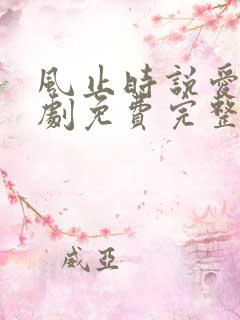 風止時說愛
劇免費完整
威亞